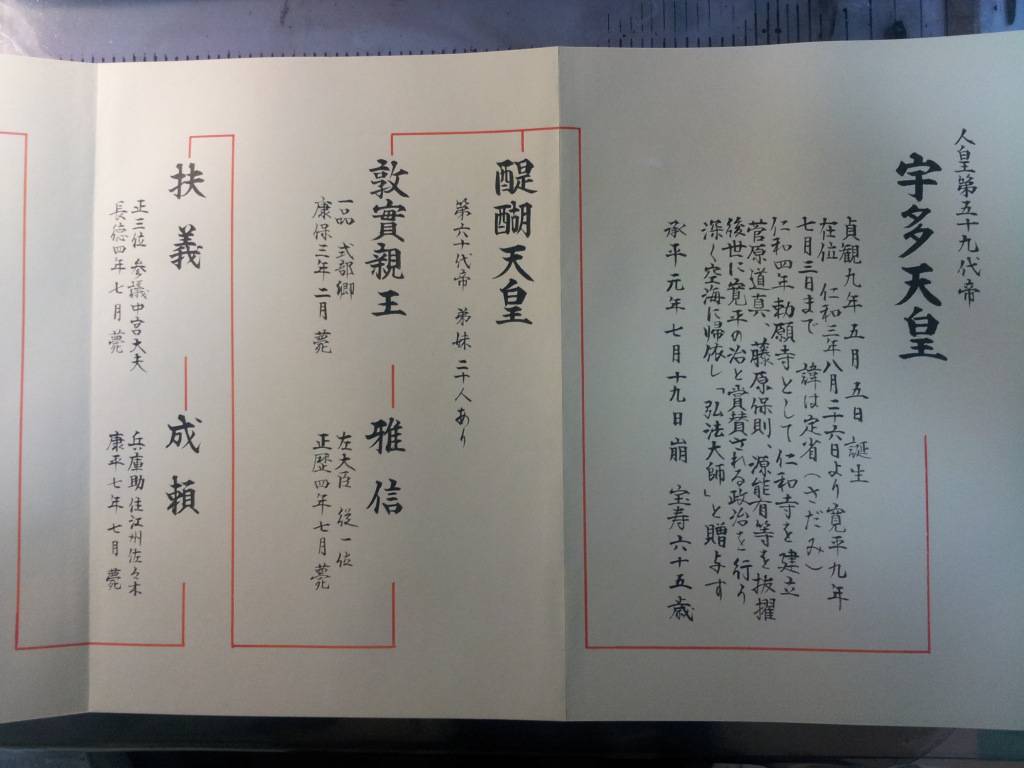 人皇第五十九代帝
宇多天皇
貞観九年五月五日誕生
在位 仁和三年八月二十六日より寛平九年
七月三日まで 諱は定省(さだみ)
仁和四年勅願寺として仁和寺を建立
菅原道真、藤原保則、源能有等を抜擢
後世に寛平の治と賞賛される政治を行う
深く空海に帰依し「弘法大師」と贈与す
承平元年七月十九日崩 宝寿六十五歳
醍醐天皇
第六十代帝 弟妹二十人あり
敦實親王
一品 式部卿
康保三年二月薨
雅信
左大臣 従一位
正歴四年七月薨
扶義
正三位 参議中宮大夫
長徳四年七月薨
成頼
兵庫助住江州佐々木
康平七年七月薨